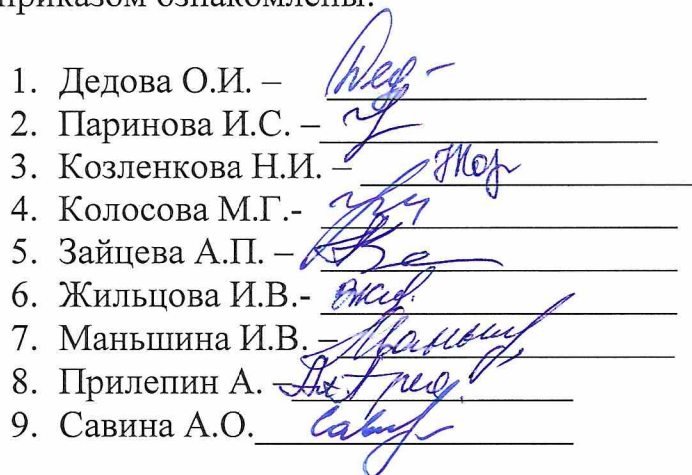 приказом ознакомлены:
1. Дедова О.И. –
2. Паринова И.С. –
3. Козленкова Н.И. –
4. Колосова М.Г.-
5. Зайцева А.П. –
6. Жильцова И.В.-
7. Маньшина И.В. –
8. Прилепин А. –
9. Савина А.О.